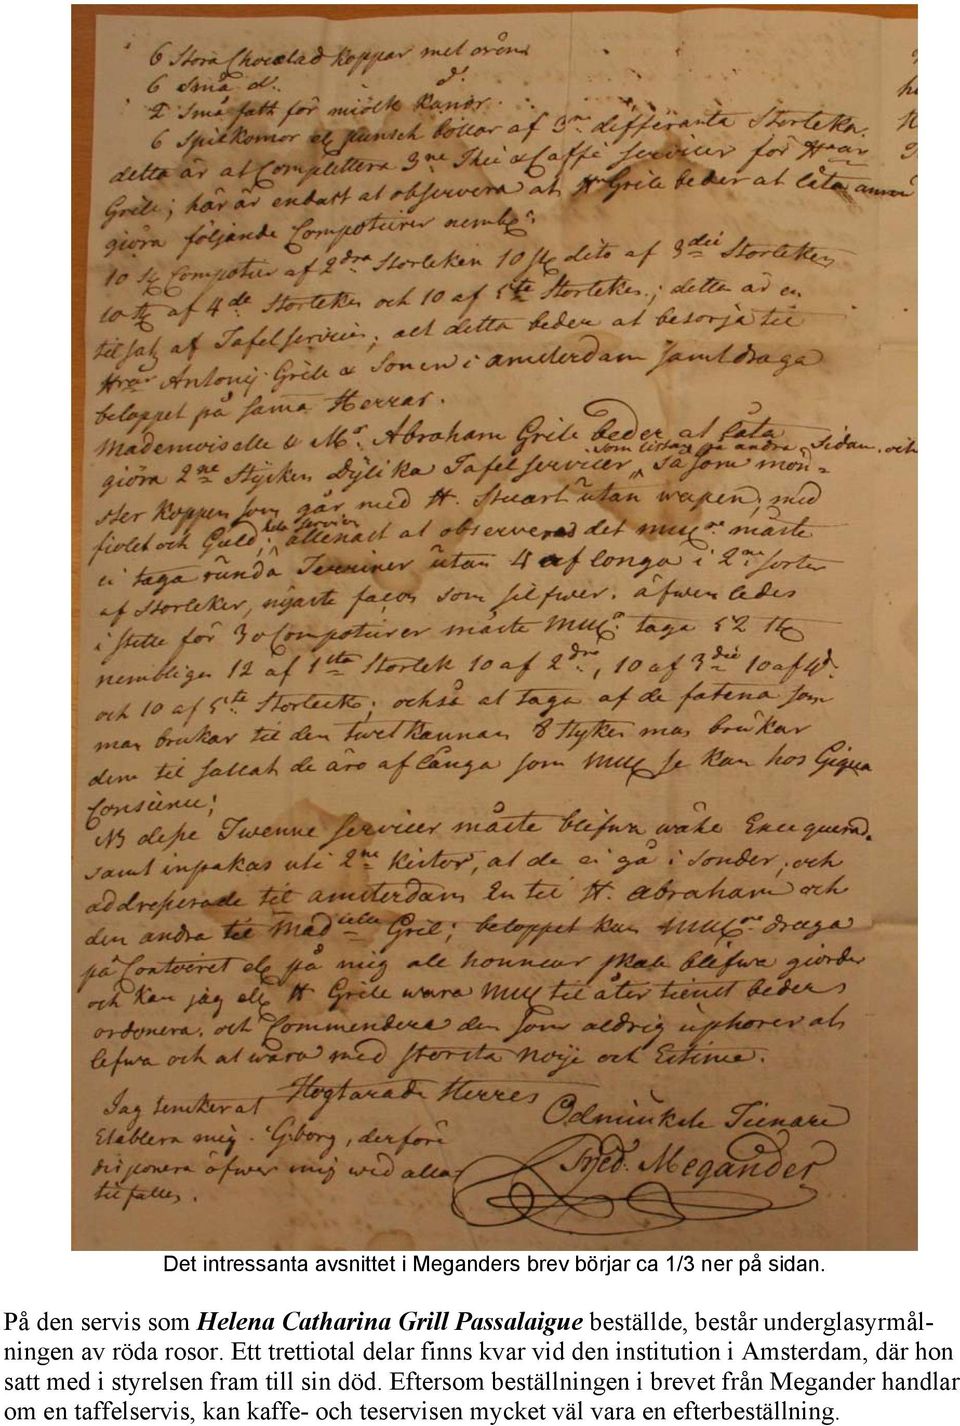 6 Stora Chocolad koppar met oron
6 små d°. d°.
2 Små fatt för miölk Kanor.
6 Spilkomor el punsch bollar af 3ne differanta Storleka.
detta är at Complettera 3ne Thee & Caffe servicer för Hrar
Grile; här är endast at observera at Hr Grile beder at låta
giöra följande Compotiirer nembl:
10 st Compotier af 2dra Storleken 10 st dito af 3die Storleken
10 st af 4de Storleken och 10 af 5te Storleken; detta är en
tilsatz af Tafelservicen; alt detta beder at besörja til
Hrar Antonij Grile & Sonen i amsterdam samt draga
beloppet på sama Herrar.
Mademoiselle & Mr. Abraham Grile beder at låta
som listan på andra sidan, och
giöra 2ne Stycken Dylika Tafel servicer, så som mön-
ster koppen som går med H. Stuart utan wapen, med
hela servicen
fiolet och Guld; allenast at observera det måste
ei taga runda Terriner utan 4 aflonga i 2ne sorter
af Storleker, nyaste façon som silfwer. äfwen ledes
i stelle för 30 Compotiirer måste taga 52 st
nembligen 12 af 1sta Storlek 10 af 2dre, 10 af 3die 10 af 4d.
och 10 af 5te Storleck; också at taga af de fatena som
man brukar til den 8 Styken man brukar
dem til sallat de äro aflånga som se kan hos
NB desse Twenne servicer måste blifwa
samt inpakas uti 2ne kistor, at de ei gå i sonder, och
addresserade til amsterdam En til H. abraham och
den andra til Mad Grill; beloppet kan draga
på Contoiret el på mig ale honneur skale blifwa giorder
och kan jag el H Grile wara til åter tienst beder
ordonera, och Commendera den som aldrig uphörer at
lefwa och at wara med största nöije och Estime.
Högtärade Herres
Jag tencker at
Etablera mig i Gborg, derföre
disponera äfwen mig wid alla
tilfallen.
Ödmiukste Tienare
Fred. Megander
Det intressanta avsnittet i Meganders brev börjar ca 1/3 ner på sidan.
På den servis som Helena Catharina Grill Passalaigue beställde, består underglasyrmål-
ningen av röda rosor. Ett trettiotal delar finns kvar vid den institution i Amsterdam, där hon
satt med i styrelsen fram till sin död. Eftersom beställningen i brevet från Megander handlar
om en taffelservis, kan kaffe- och teservisen mycket väl vara en efterbeställning.